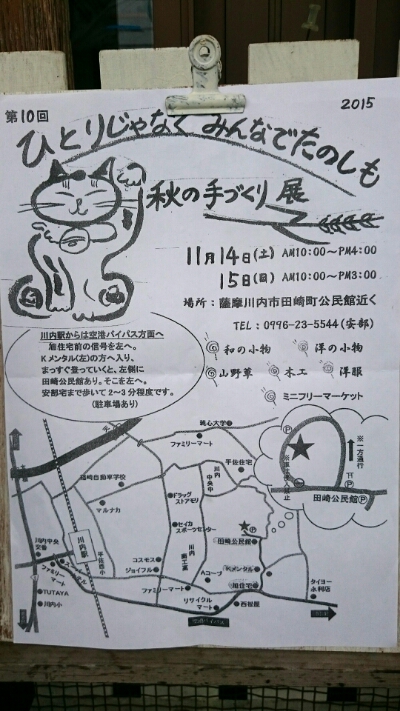 第10回
2015
ひとりじゃなく みんなでたのしも
秋の手づくり展
11月14日(土) AM10:00〜PM4:00
15日(日) AM10:00〜PM3:00
場所：薩摩川内市田崎町公民館近く
TEL：0996-23-5544(安部)
川内駅からは空港バイパス方面へ
旭住宅前の信号を左へ。
Kメンタル(左)の方へ入り、
まっすぐ登っていくと、左側に
田崎公民館あり。そこを左へ。
安部宅まで歩いて2〜3分程度です。
(駐車場あり)
和の小物
洋の小物
山野草
木工
洋服
ミニフリーマーケット
純心大学
ファミリーマート
平佐住宅
川内中央中
ドラッグストアモリ
セイカスポーツセンター
マルナカ
川内駅
平佐西小
川内中央交番
ファミリーマート
TUTAYA
川内小
コスモス
ジョイフル
川内商工高
Aコープ
ファミリーマート
リサイクルマート
西福館
田崎公民館
Kメンタル
旭住宅
タイヨー永利店
P
※一方通行
田崎公民館
P